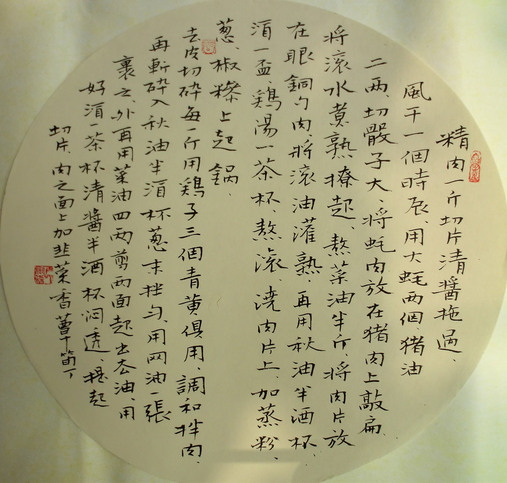 精肉一斤切片清醬拖過、
風干一個時辰、用大蚝两個、猪油
二两、切骰子大、將蚝肉放在猪肉上敲扁、
將滚水煮熟撩起、熬菜油半斤、將肉片放
在眼銅勺肉、將滚油灌熟、再用秋油半酒杯、
酒一盃、鷄湯一茶杯、熬滚、澆肉片上、加蒸粉、
葱、椒糝上起鍋、
去皮切碎每一斤用鷄子三個青黄俱用、調和拌肉、
再斬碎入秋油半酒杯葱末拌匀、用网油一張
裹之、外再用菜油四两剪两面起出去油、用
好酒一茶杯清醬半酒杯闷透、提起
切片、肉之面上加韭菜香蕈笋丁